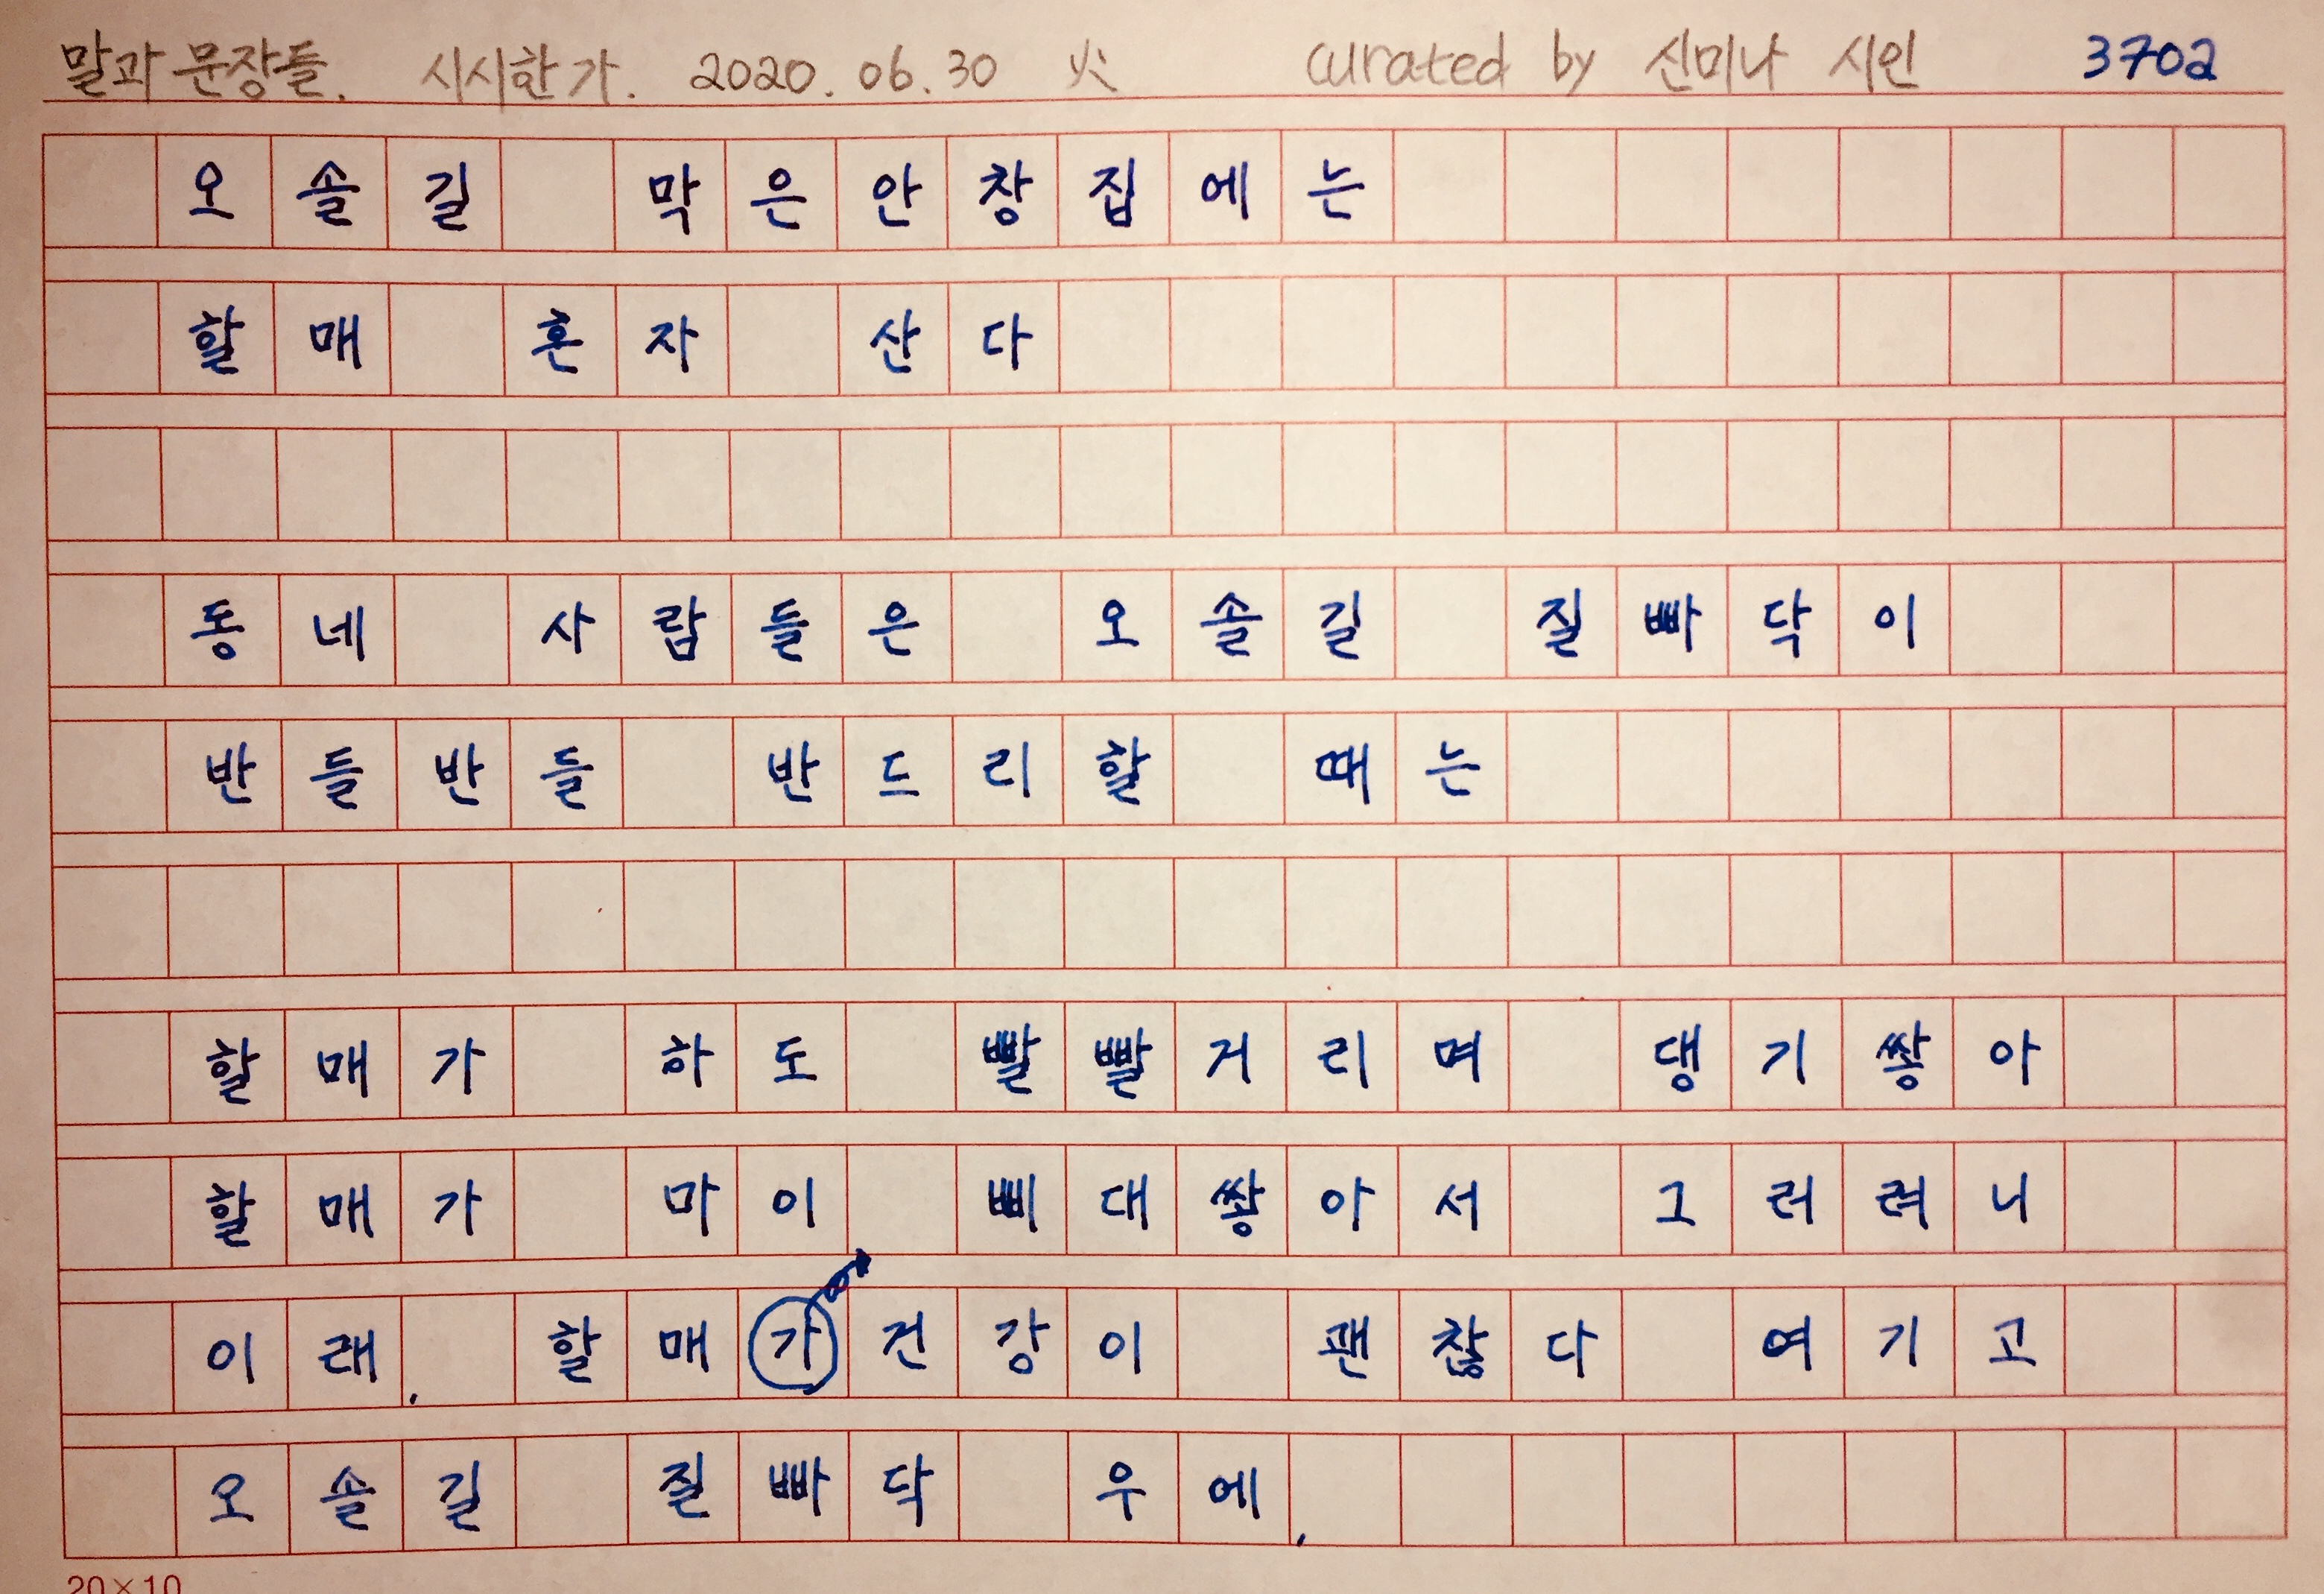 말과 문장들. 시시한가. 2020. 06. 30 火 curated by 신미나 시인 3702
오솔길 막은안창집에는
할매 혼자 산다
동네 사람들은 오솔길 질빠닥이
반들반들 반드리할 때는
할매가 하도 빨빨거리며 댕기쌓아
할매가 마이 삐대쌓아서 그러려니
이래. 할매가건강이 괜찮다 여기고
오솔길 질빠닥 우에.
20×10